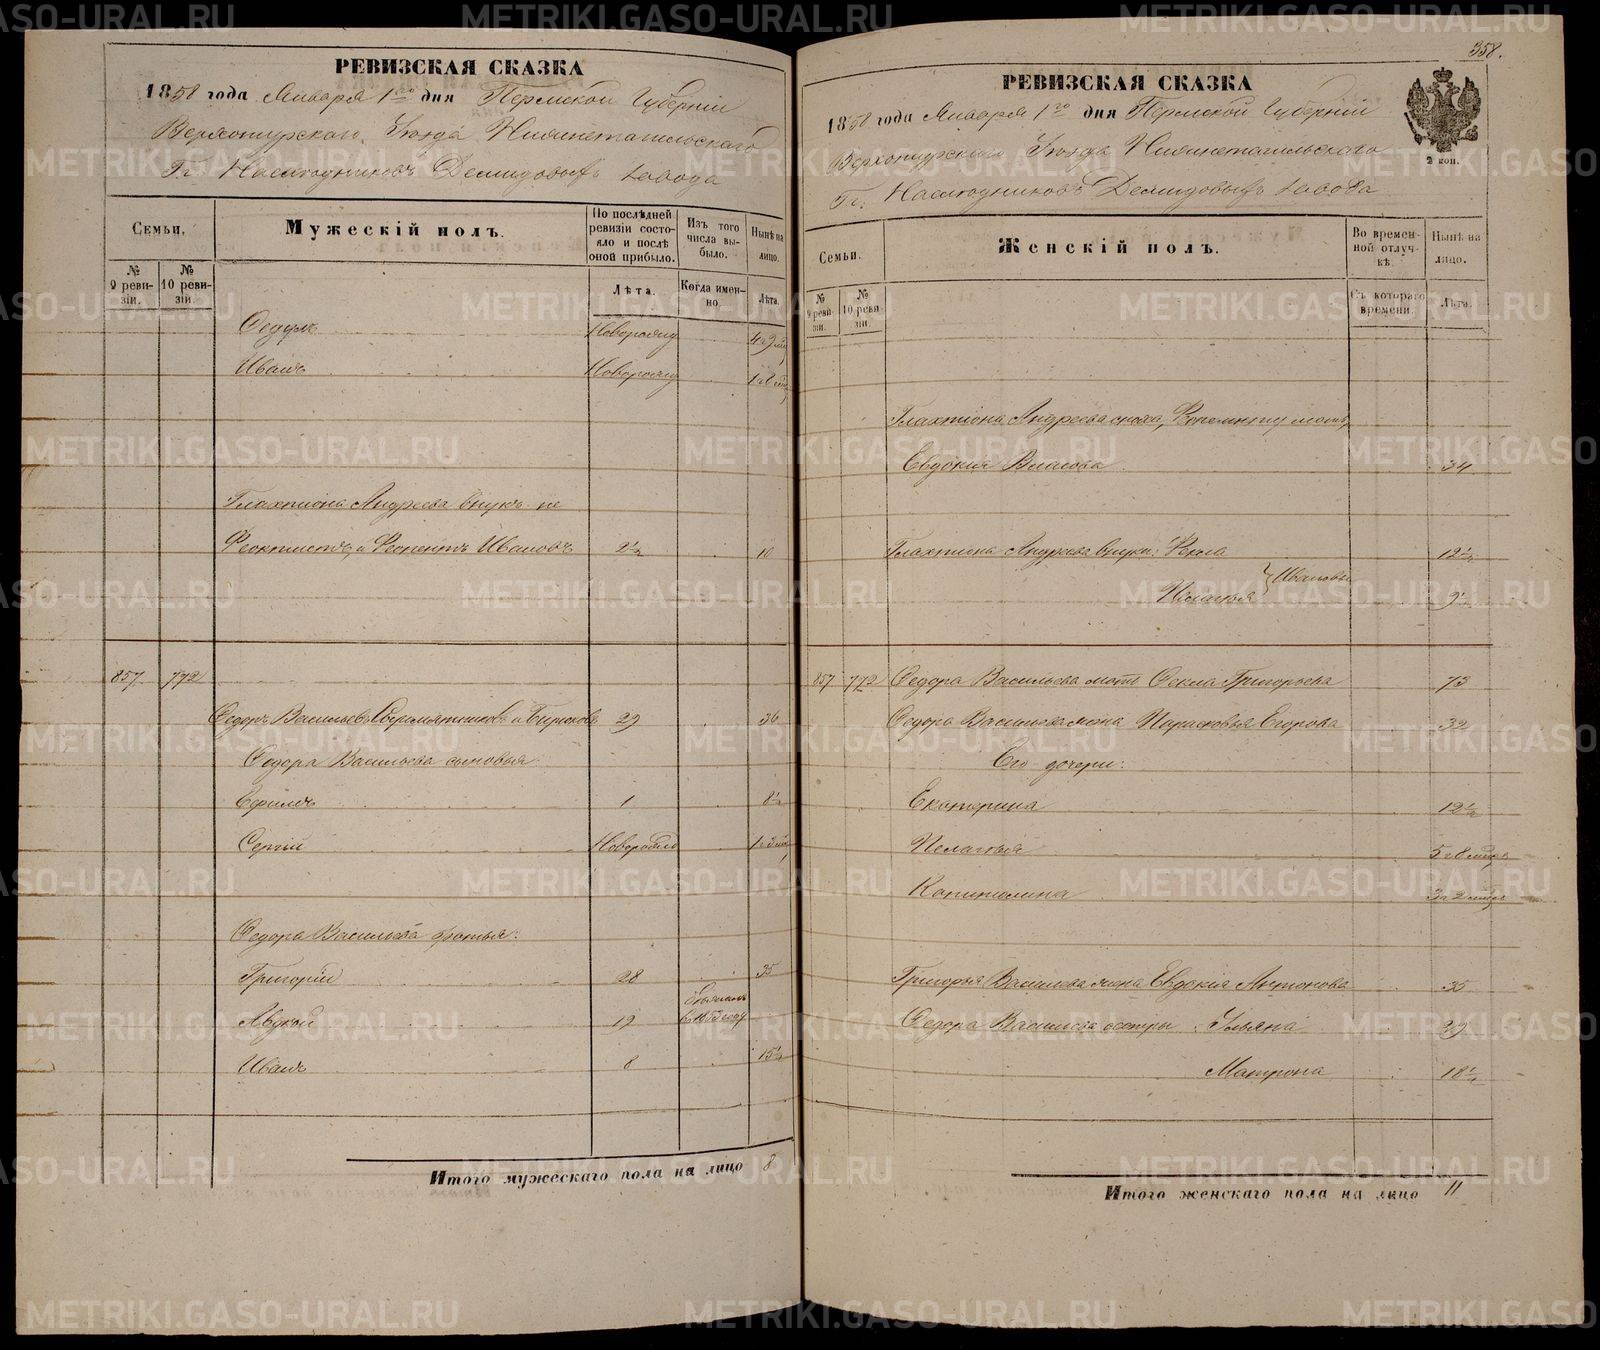 РЕВИЗСКАЯ СКАЗКА
1858 года Января 1го дня Пермской Губернiи
Верхотурскаго Уѣзда Нижнетагильскаго
Гг. Наслѣдниковъ Демидовыхъ Завода
Семьи.
Мужескiй полъ.
По послѣдней ревизiи состояло и послѣ оной прибыло.
Изъ того числа выбыло.
Нынѣ на лицо.
№ 9 ревизiи.
№ 10 ревизiи.
Лѣта.
Когда именно.
Лѣта.
Ѳедулъ Новорожд
Иванъ Новорожд
Галахтiона Андреева внуки
Феоктистъ, и Ивановъ 2½ 10
857 772
Ѳедоръ Васильевъ и Бирюковъ 29 36
Ѳедора Васильева сыновья
Ефимъ 1 8½
Сергiй Новорожд
Ѳедора Васильева братья:
Григорiй 28 35
Авдкой 19
Иванъ 8 15½
Итого мужескаго пола на лицо 8
358.
РЕВИЗСКАЯ СКАЗКА
2 коп.
1858 года Января 1го дня Пермской Губернiи
Верхотурскаго Уѣзда Нижнетагильскаго
Гг. Наслѣдниковъ Демидовыхъ Завода
Семьи.
Женскiй полъ.
Во временной отлучкѣ.
Нынѣ на лицо.
№ 9 ревизiи.
№ 10 ревизiи.
Съ котораго времени.
Лѣта.
Галахтiона Андреева сноха, мать,
Евдокия Власова 34
Галахтiона Андреева внуки: Фекла 12½
Пелагья Ивановы 9½
857 772 Ѳедора Васильева мать Ѳекла Григорьева 73
Ѳедора Васильева жена Парасковья Егорова 32
Его дочери:
Екатерина 12½
Пелагья 5 г 8 мцъ
Капитолина 3 г 2 мцъ
Григорья Васильева жена Евдокiя Антонова 35
Ѳедора Васильева сестры: Ульяна 29
Матрона 18½
Итого женскаго пола на лицо 11
METRIKI.GASO-URAL.RU